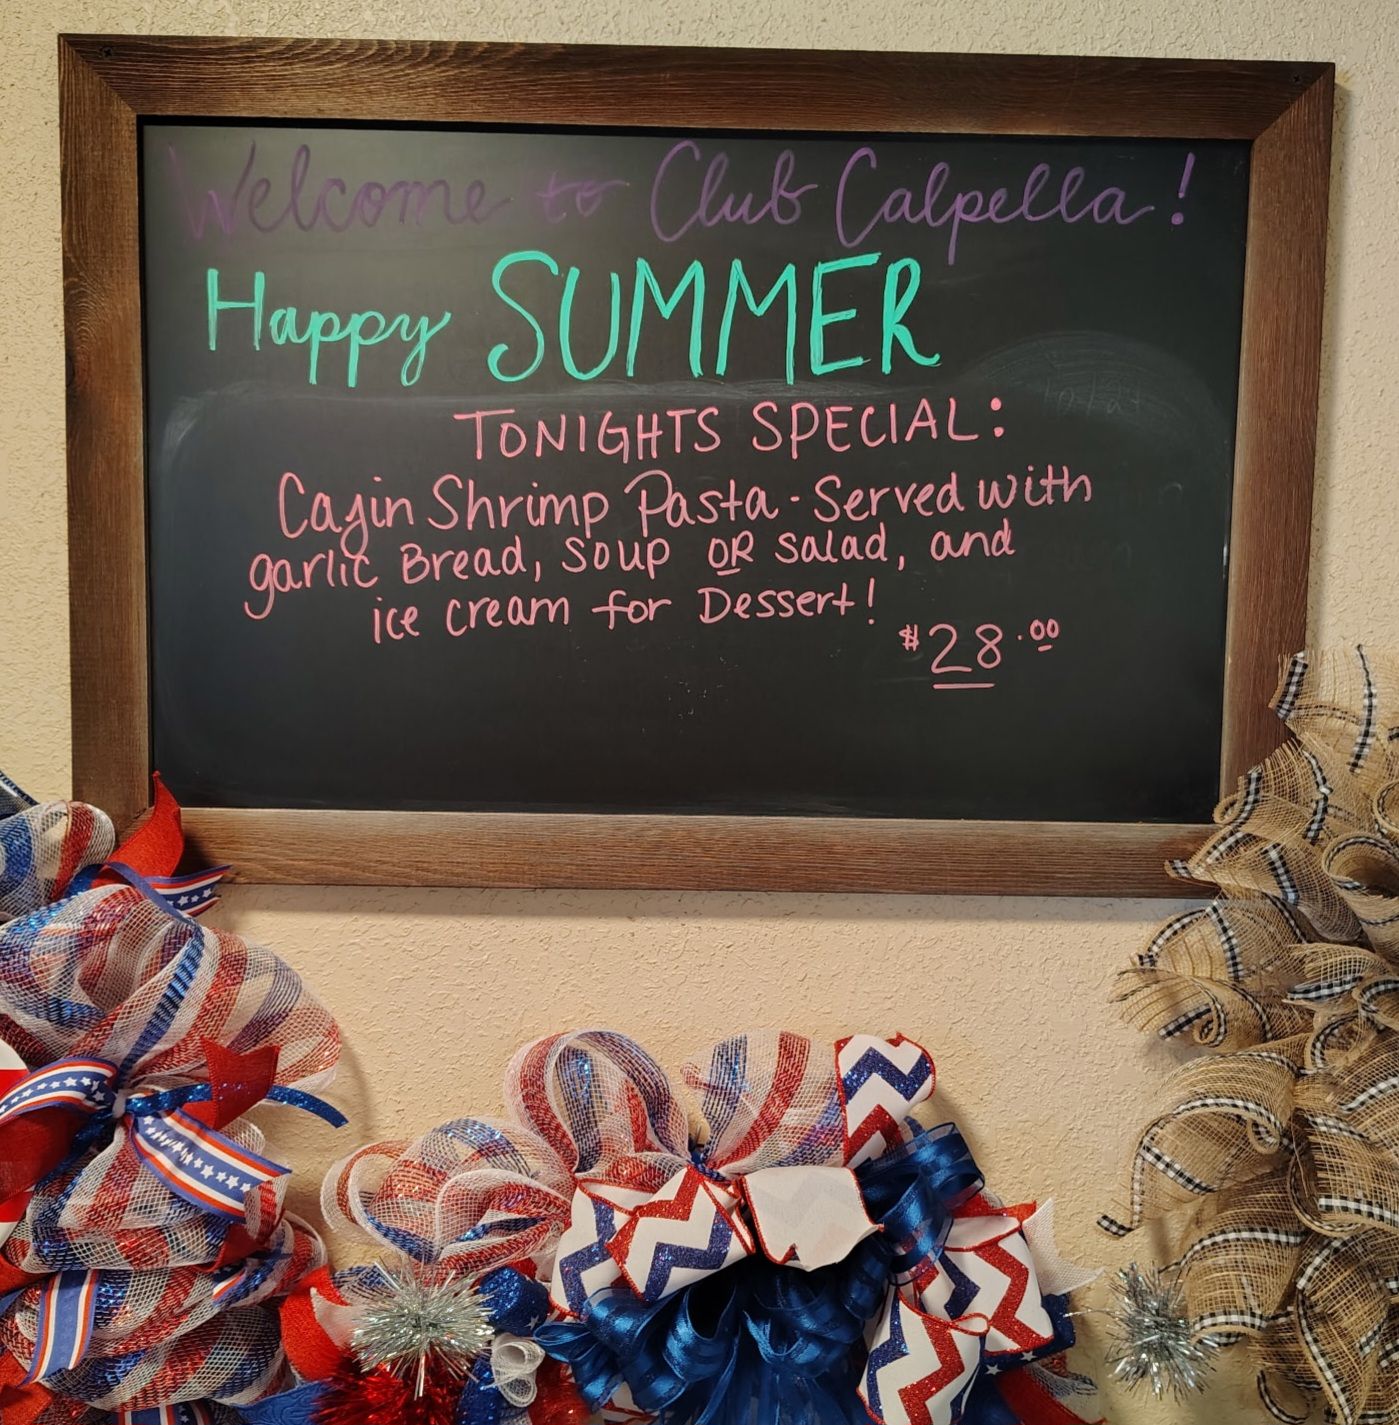 Welcome to Club Calpella!
Happy SUMMER
TONIGHTS SPECIAL:
Cajin Shrimp Pasta - Served with
garlic Bread, Soup OR Salad, and
ice cream for Dessert!
$28.00